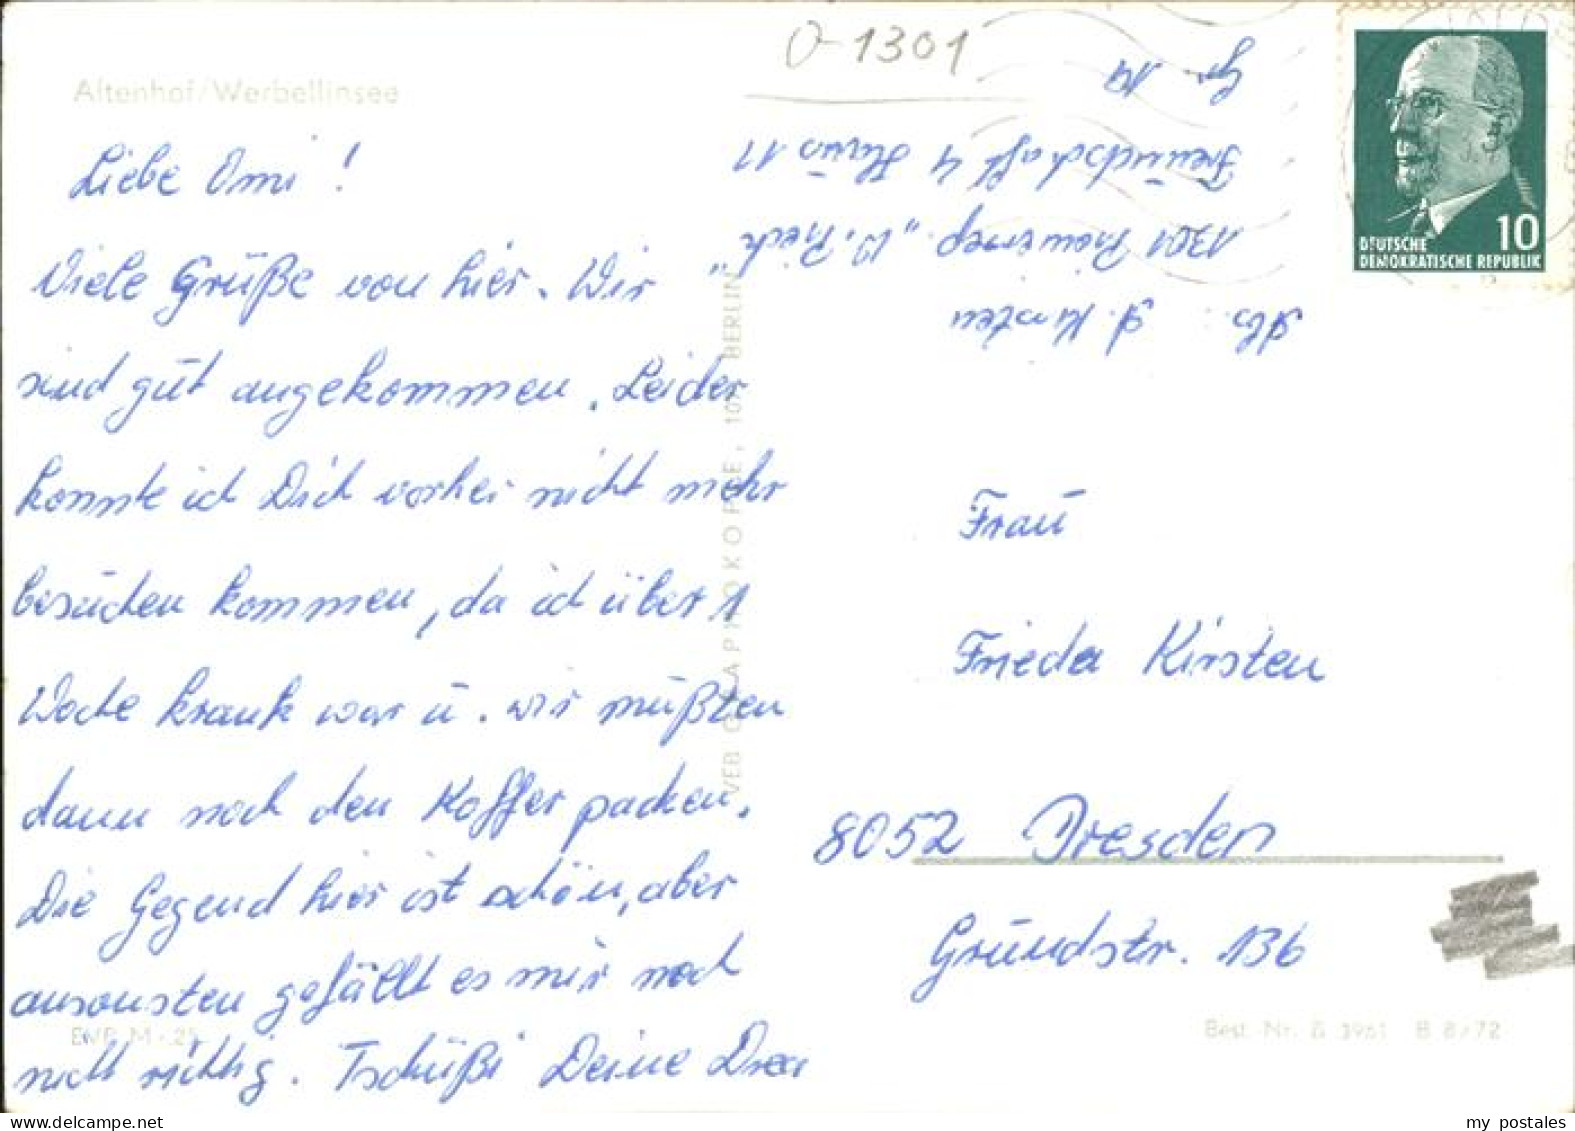 Altenhof/Werbellinsee
Liebe Omi!
Viele Grüße von hier. Wir
sind gut angekommen. Leider
konnte ich Dich vorher nicht mehr
besuchen kommen, da ich über 1
Woche krank war u. wir mußten
dann noch den Koffer packen.
Die Gegend hier ist schön, aber
ansonsten gefällt es mir noch
nicht richtig. Tschüßi Deine
EVP M -.25
VEB GRAPHOKOPIE, 107 BERLIN
0-1301
Abs.: A. Kirsten
1301 "W. Pieck"
Freundschaft 4 Haus 11
Gr. 19
10
DEUTSCHE
DEMOKRATISCHE REPUBLIK
Frau
Frieda Kirsten
8052 Dresden
Grundstr. 136
Best. Nr. G 3961 B 8/72
my postales